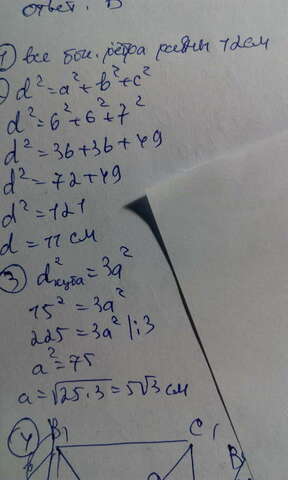 Ответ. В
1) все бок. рёбра равны 12см
2) d² = a² + b² + c²
d² = 6² + 6² + 7²
d² = 36 + 36 + 49
d² = 72 + 49
d² = 121
d = 11 см
3) d²куба = 3a²
15² = 3a²
225 = 3a² |:3
a² = 75
a = √25·3 = 5√3 см
4) B₁ C₁
B